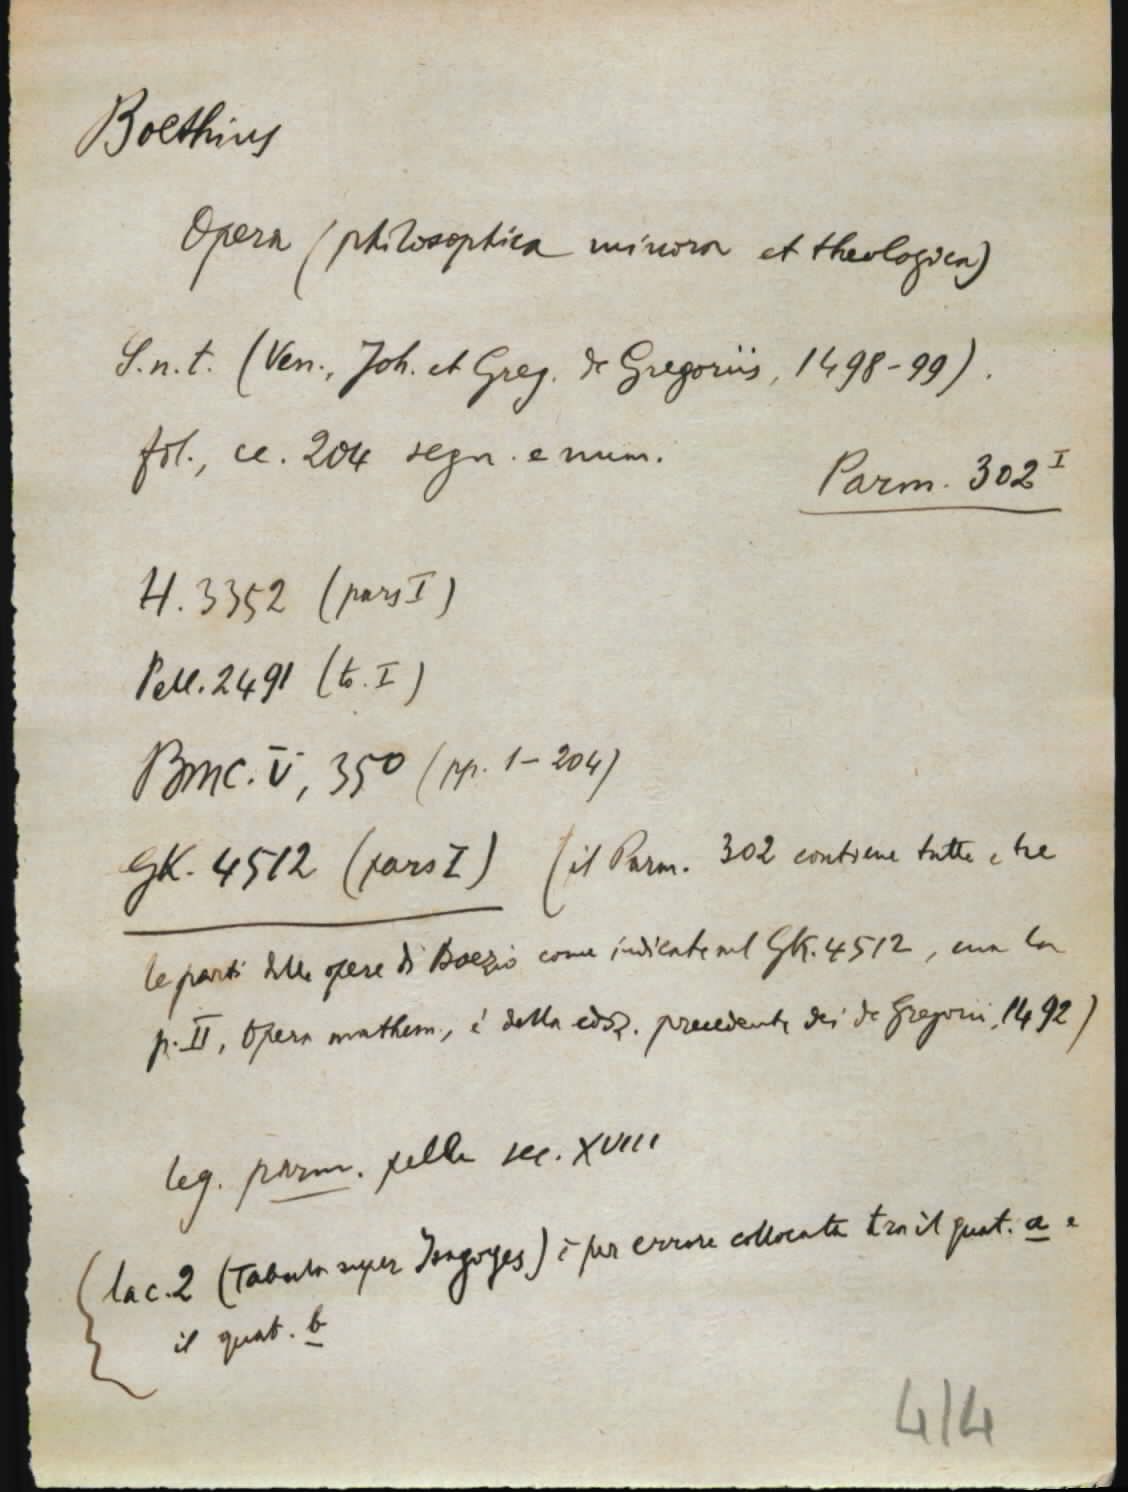 Boethius
Opera (philosophica minora et theologica)
S.n.t. (Ven., Joh. et Greg. de Gregoriis, 1498-99).
fol., cc. 204 segn. e num.
Parm. 302 I
H. 3352 (pars I)
Pell. 2491 (to. I)
BMC. V, 350 (pp. 1-204)
GK. 4512 (pars I) (il Parm. 302 contiene tutte e tre
le parti delle opere di Boezio come indicate nel GK. 4512, ma la
p. II, Opera mathem., è della ediz. precedente dei de Gregorii, 1492)
leg. parm. pelle sec. XVIII
la c. 2 (Tabula super Isagoges) è per errore collocata tra il quat. a e
il quat. b
414